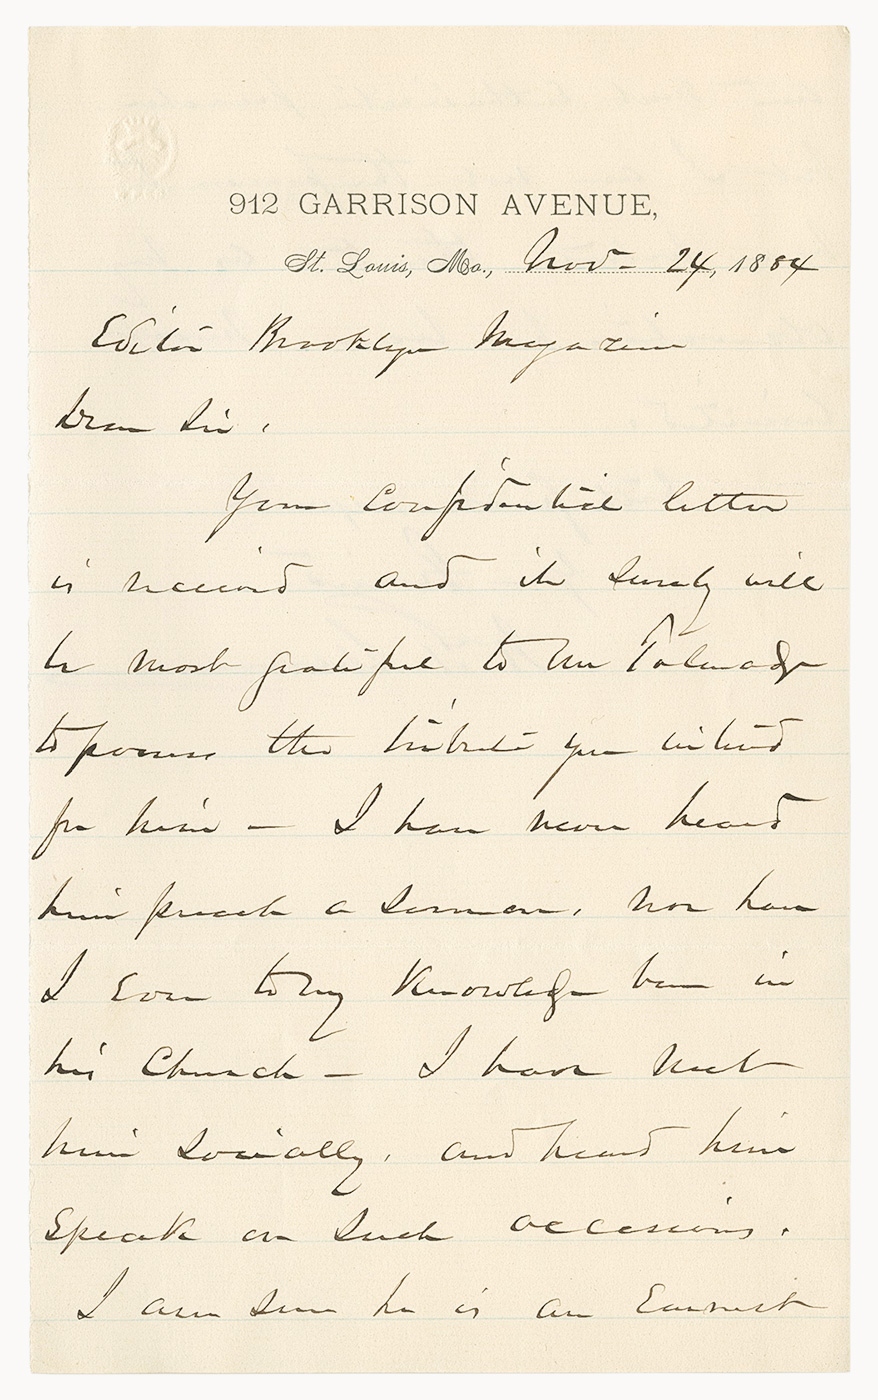 912 GARRISON AVENUE,
St. Louis, Mo., Nov - 24, 1884
Editor Brooklyn Magazine
Dear Sir,
Your Confidential letter
is received and it surely will
be most grateful to Mr Talmadge
to possess the tribute you intend
for him - I have never heard
him preach a sermon, nor have
I Ever to my Knowledge been in
his Church - I have met
him socially, and heard him
Speak on such occasions.
I am sure he is an Earnest